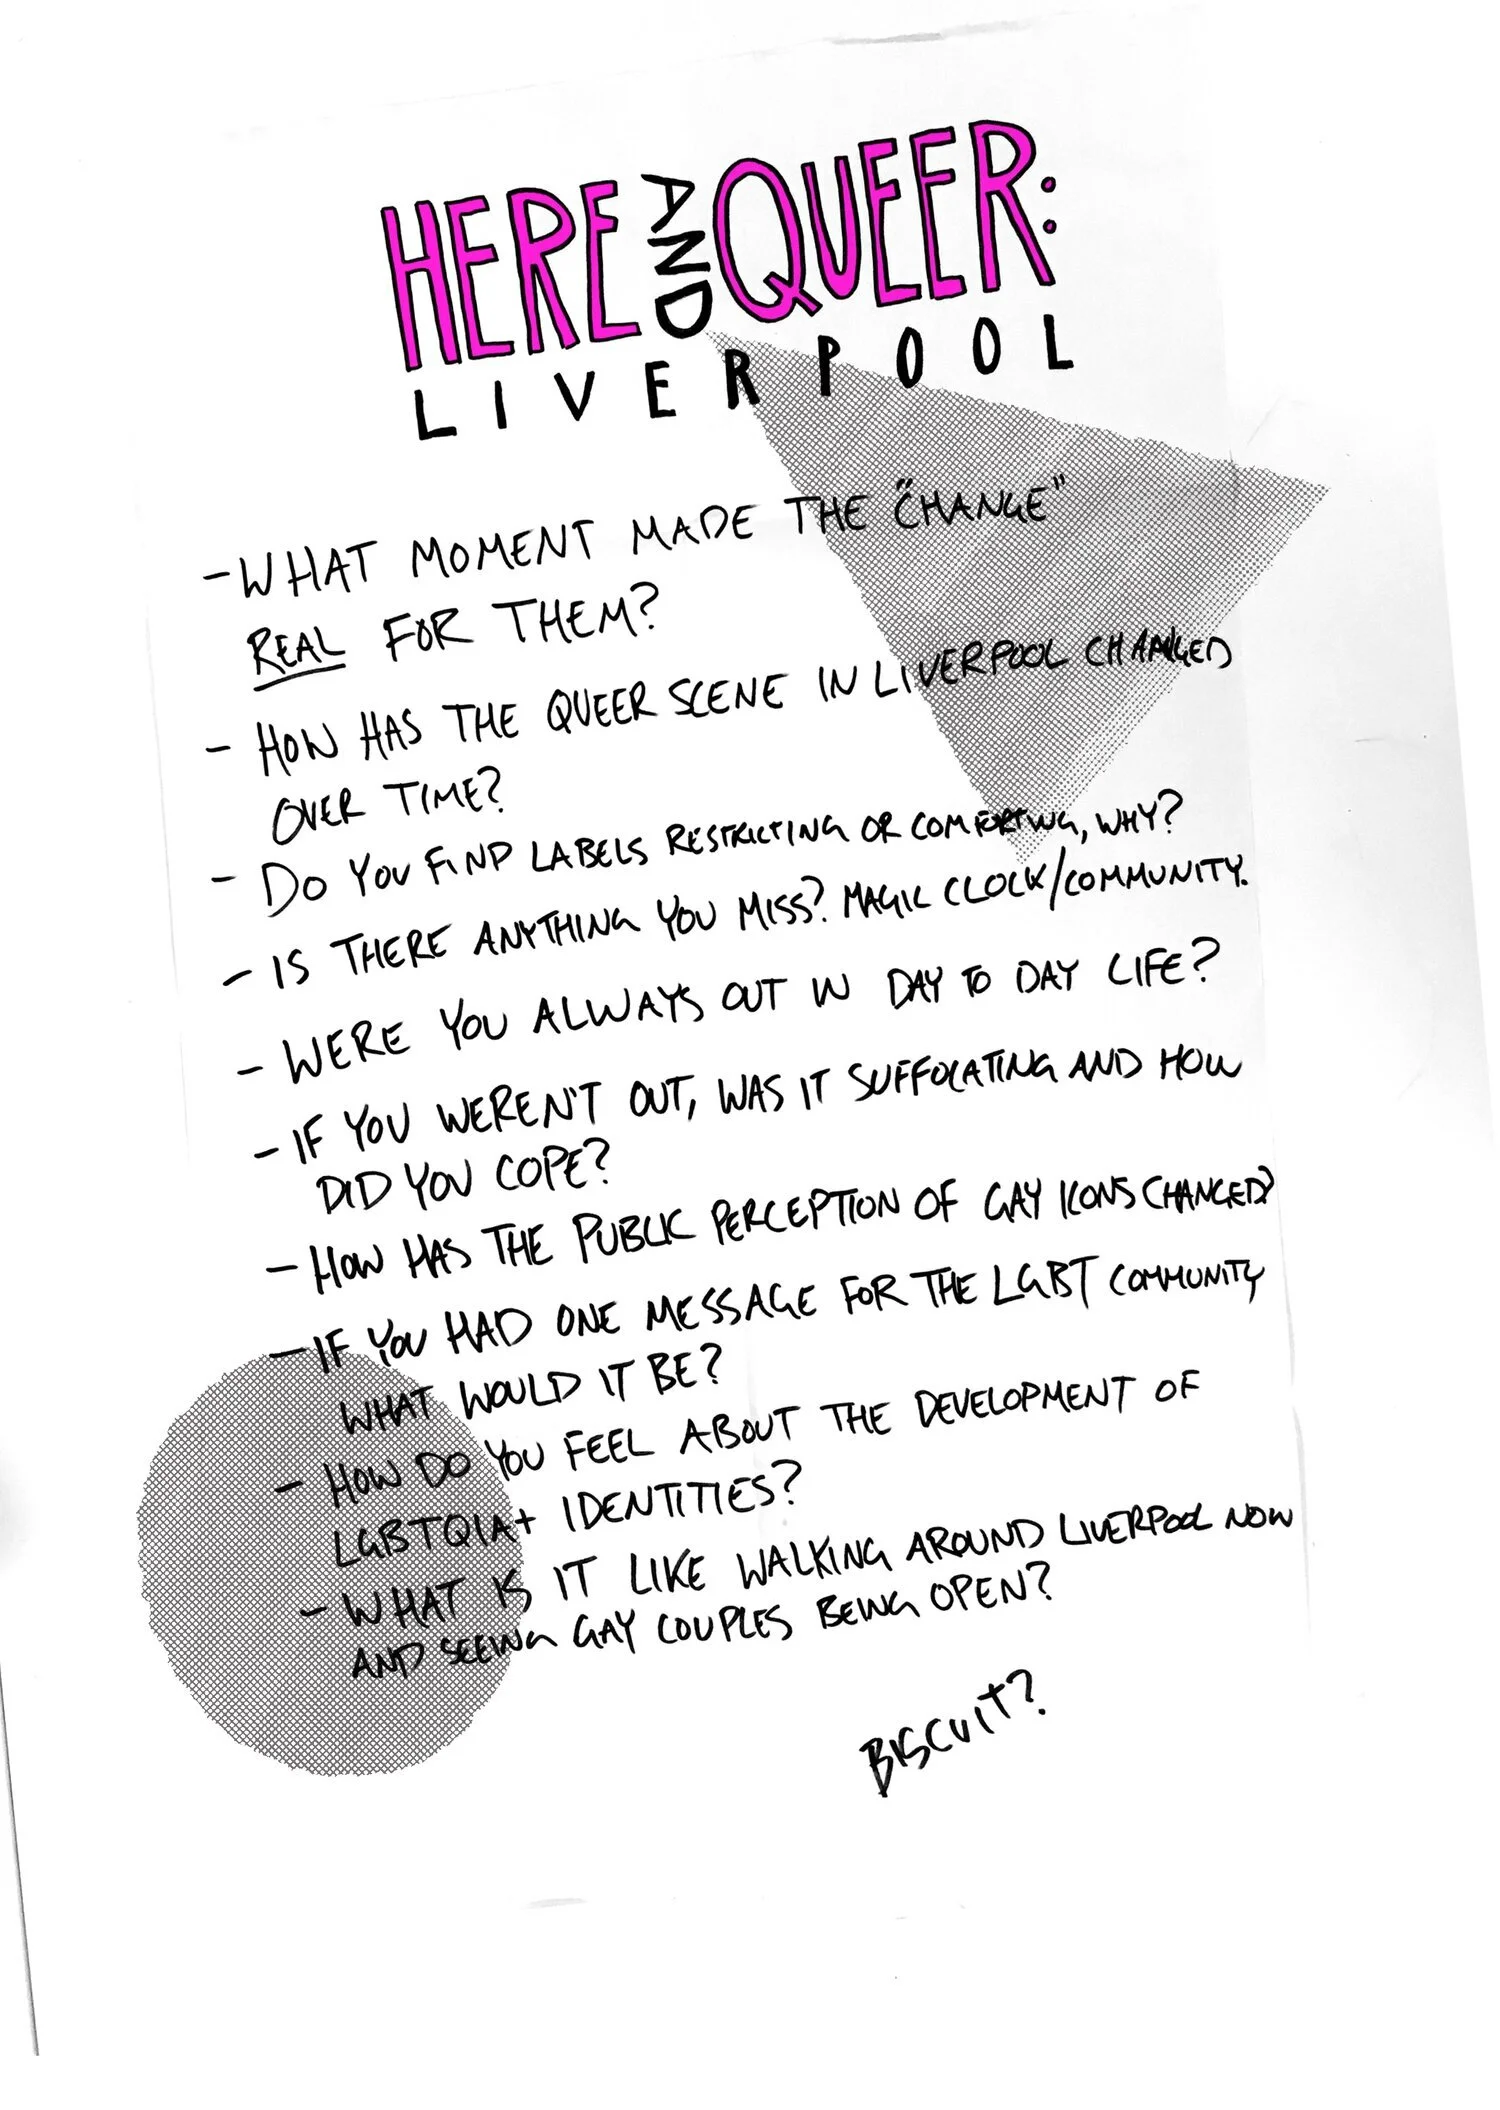 HERE AND QUEER:
LIVERPOOL
- WHAT MOMENT MADE THE "CHANGE"
REAL FOR THEM?
- HOW HAS THE QUEER SCENE IN LIVERPOOL CHANGED
OVER TIME?
- DO YOU FIND LABELS RESTRICTING OR COMFORTING, WHY?
- IS THERE ANYTHING YOU MISS? MAGIC CLOCK/COMMUNITY.
- WERE YOU ALWAYS OUT IN DAY TO DAY LIFE?
- IF YOU WEREN'T OUT, WAS IT SUFFOCATING AND HOW
DID YOU COPE?
- HOW HAS THE PUBLIC PERCEPTION OF GAY ICONS CHANGED?
- IF YOU HAD ONE MESSAGE FOR THE LGBT COMMUNITY
WHAT WOULD IT BE?
- HOW DO YOU FEEL ABOUT THE DEVELOPMENT OF
LGBTQIA+ IDENTITIES?
- WHAT IS IT LIKE WALKING AROUND LIVERPOOL NOW
AND SEEING GAY COUPLES BEING OPEN?
BISCUIT?